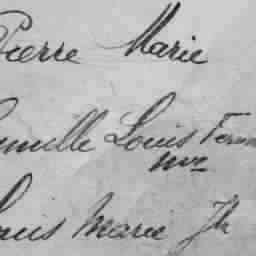 Pierre Marie
Camille Louis
Louis Marie Jh